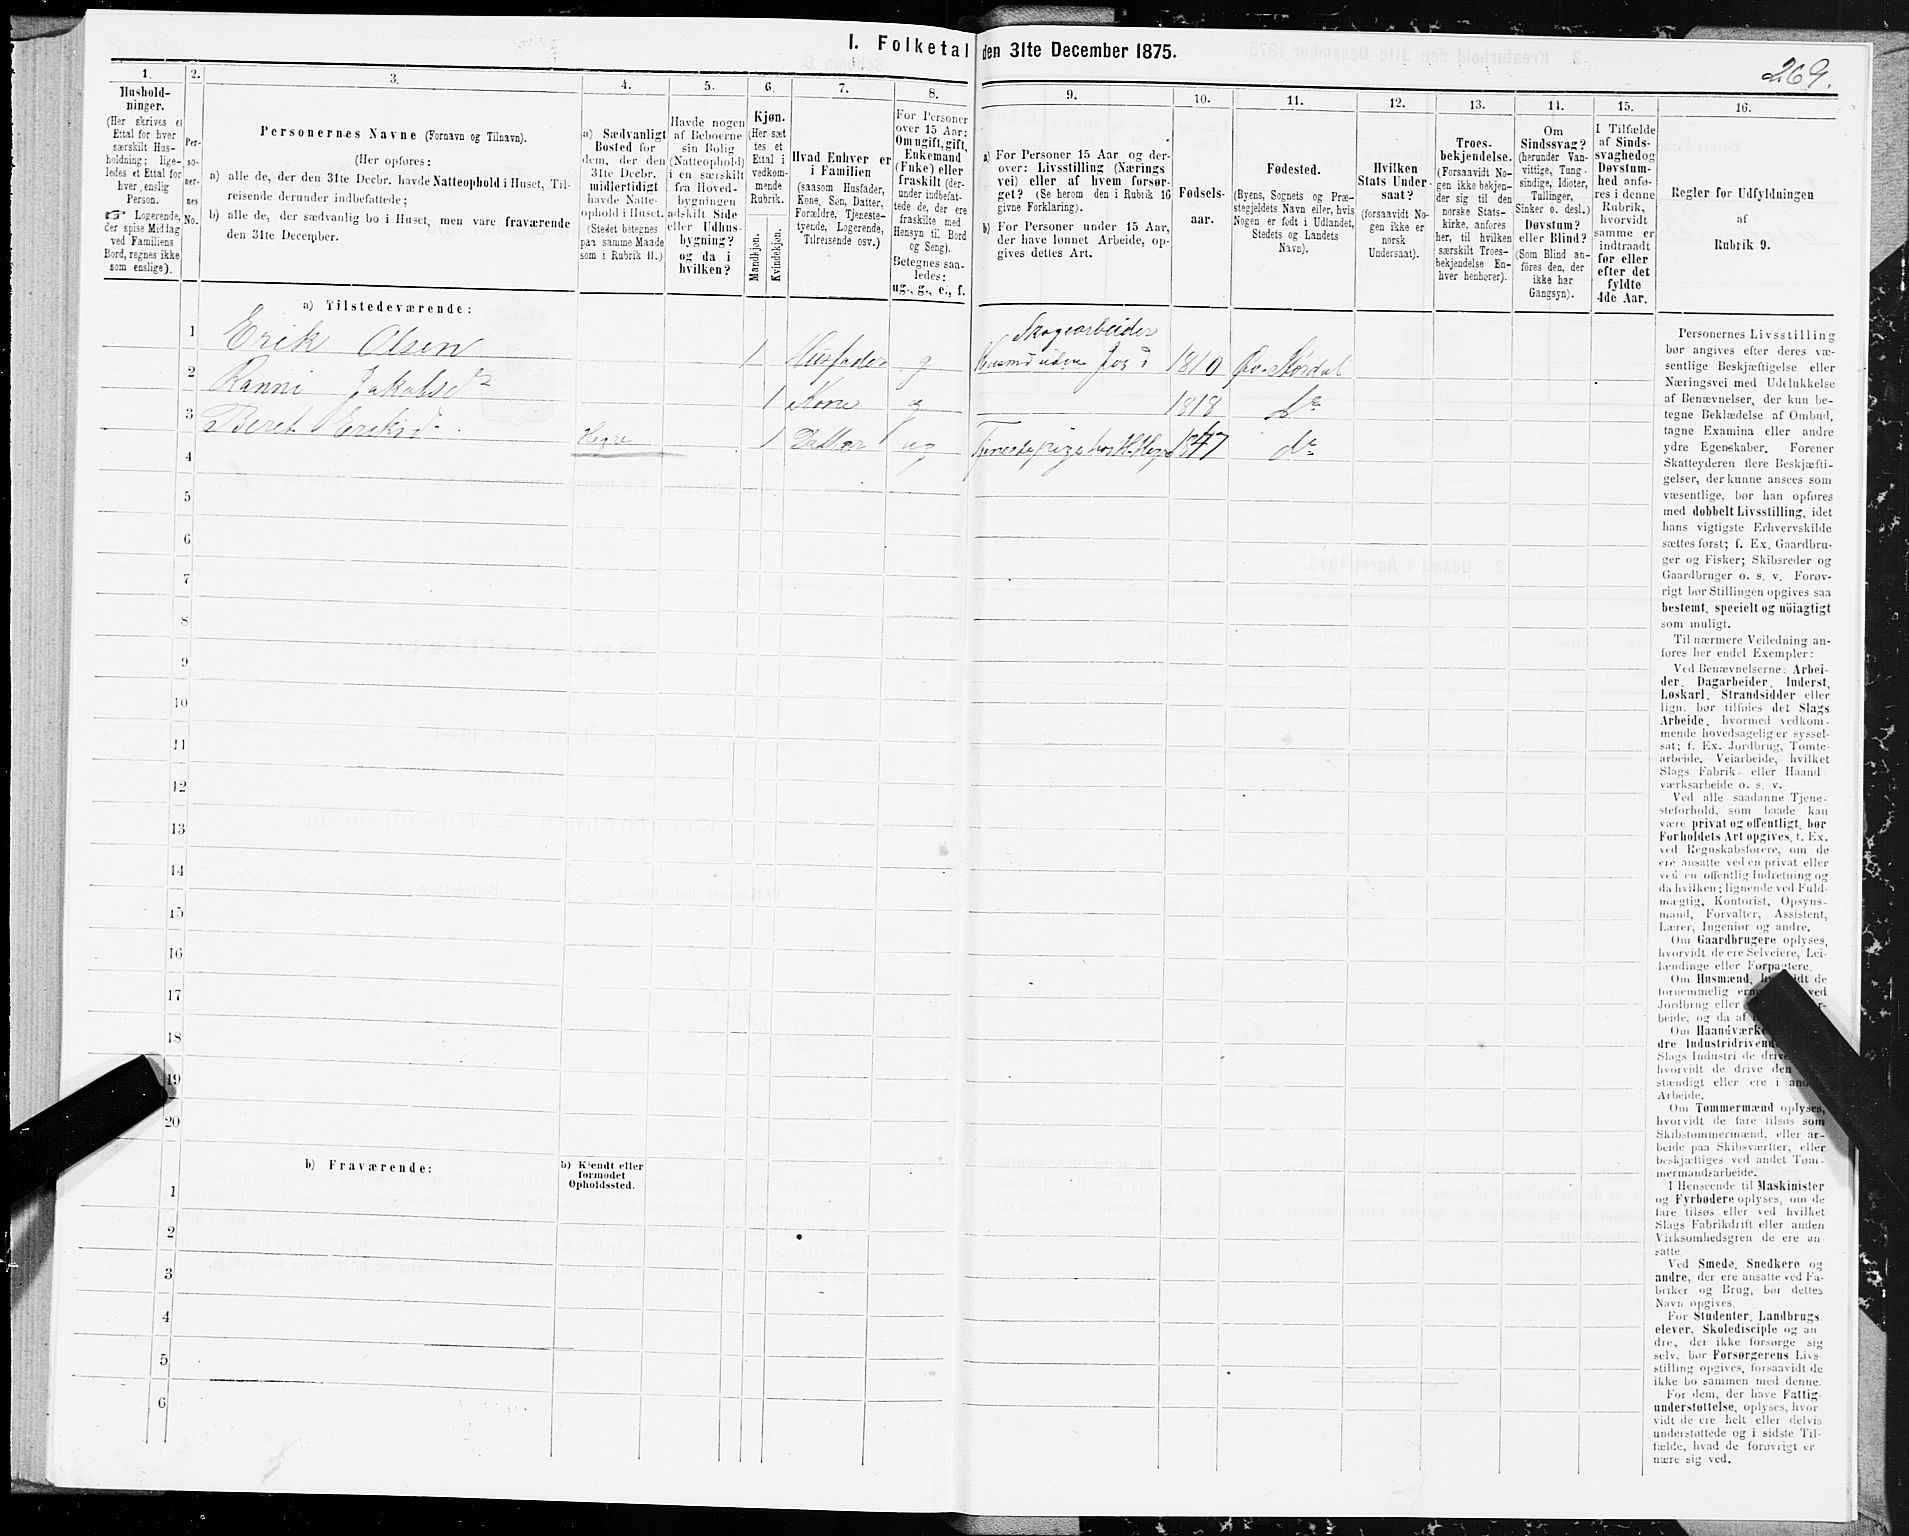 I. Folketal den 31te December 1875.
269.
1.
Hushold-
ninger.
(Her skrives et
Ettal for hver
særskilt Hus-
holdning; lige-
ledes et Ettal for
hver enslig
Person.
☞ Logerende,
der spise Middag
ved Familiens
Bord, regnes ikke
som enslige).
2.
Per-
so-
ner-
nes
No.
3.
Personernes Navne (Fornavn og Tilnavn).
(Her opføres:
a) alle de, der den 31te Decbr. havde Natteophold i Huset, Til-
reisende derunder indbefattede;
b) alle de, der sædvanlig bo i Huset, men vare fraværende
den 31te December.
4.
a) Sædvanligt
Bosted for
dem, der den
31te Decbr.
midlertidigt
havde Natte-
ophold i Huset.
(Stedet betegnes
paa samme Maade
som i Rubrik 11.)
5.
Havde nogen
af Beboerne
sin Bolig
(Natteophold)
i en særskilt
fra Hoved-
bygningen
adskilt Side
eller Udhus-
bygning?
og da i
hvilken?
6.
Kjøn.
(Her sæt
tes et
Ettal i
vedkom-
mende
Rubrik.
Mandkjøn.
Kvindekjøn.
7.
Hvad Enhver er
i Familien
(saasom Husfader,
Kone, Søn, Datter,
Forældre, Tjeneste-
tyende, Logerende,
Tilreisende osv.)
8.
For Personer
over 15 Aar:
Om ugift, gift,
Enkemand
(Enke) eller
fraskilt (der-
under indbefat-
tede de, der ere
fraskilte med
Hensyn til Bord
og Seng).
Betegnes saa-
ledes:
ug., g., e., f.
9.
a) For Personer 15 Aar og der-
over: Livsstilling (Nærings
vei) eller af hvem forsør-
get? (Se herom den i Rubrik 16
givne Forklaring).
b) For Personer under 15 Aar,
der have lønnet Arbeide, op-
gives dettes Art.
10.
Fødsels-
aar.
11.
Fødested.
(Byens, Sognets og Præ-
stegjeldets Navn eller, hvis
Nogen er født i Udlandet,
Stedets og Landets
Navn).
12.
Hvilken
Stats Under-
saat?
(forsaavidt No-
gen ikke er
norsk
Undersaat).
13.
Troes-
bekjendelse.
(Forsaavidt No-
gen ikke bekjen-
der sig til den
norske Stats-
kirke, anføres
her, til hvilken
særskilt Troes-
bekjendelse En-
hver henhører).
14.
Om
Sindssvag?
(herunder Van-
vittige, Tung-
sindige, Idioter,
Tullinger,
Sinker o. desl.)
Døvstum?
eller Blind?
(Som Blind an-
føres den, der
ikke har
Gangsyn).
15.
I Tilfælde
af Sinds-
svaghed og
Døvstum-
hed anfø-
res i denne
Rubrik,
hvorvidt
samme er
indtraadt
før eller
efter det
fyldte
4de Aar.
16.
Regler for Udfyldningen
af
Rubrik 9.
a) Tilstedeværende:
1 Erik Olsen 1 Husfader g Skogearbeider Husmd uden Jord 1810 Øv. Størdal
2 Ranni Jakobsd 1 Kone g 1818 do
3 Beret Eriksd Hegre 1 Datter ug Tjenestepige hos H. Hegre 1847 do
4
5
6
7
8
9
10
11
12
13
14
15
16
17
18
19
20
b) Fraværende:
b) Kjendt eller
formodet
Opholdssted.
1
2
3
4
5
6
Personernes Livsstilling
bør angives efter deres væ-
sentlige Beskjæftigelse eller
Næringsvei med Udelukkelse
af Benævnelser, der kun be-
tegne Beklædelse af Ombud,
tagne Examina eller andre
ydre Egenskaber. Forener
Skatteyderen flere Beskjæfti-
gelser, der kunne ansees som
væsentlige, bør han opføres
med dobbelt Livsstilling, idet
hans vigtigste Erhvervskilde
sættes først; f. Ex. Gaardbru-
ger og Fisker; Skibsreder og
Gaardbruger o. s. v. Forøv-
rigt bør Stillingen opgives saa
bestemt, specielt og nöiagtigt
som muligt.
Til nærmere Veiledning an-
føres her endel Exempler:
Ved Benævnelserne: Arbei-
der, Dagarbeider, Inderst,
Løskarl, Strandsidder eller
lign. bør tilføies det Slags
Arbeide, hvormed vedkom-
mende hovedsagelig er syssel-
sat; f. Ex. Jordbrug, Tomte-
arbeide, Veiarbeide, hvilket
Slags Fabrik- eller Haand-
værksarbeide o. s. v.
Ved alle saadanne Tjene-
steforhold, som baade kan
være privat og offentligt, bør
Forholdets Art opgives, t. Ex.
ved Regnskabsførere, om de
ere ansatte ved en privat eller
ved en offentlig Indretning og
da hvilken; lignende ved Fuld-
mægtig, Kontorist, Opsyns-
mand, Forvalter, Assistent,
Lærer, Ingeniør og andre.
Om Gaardbrugere oplyses,
hvorvidt de ere Selveiere, Lei-
lændinge eller Forpagtere.
Om Husmænd, hvorvidt de
fornemmelig
ved
Jordbrug eller
beide, og da af
Om Haandværke
dre Industridrivende
Slags Industri de drive
hvorvidt de drive den
stændigt eller ere i andres
Arbeide.
Om Tømmermænd oplyses,
hvorvidt de fare tilsøs som
Skibstømmermænd, eller ar-
beide paa Skibsværfter, eller
beskjæftiges ved andet Tøm-
mermandsarbeide.
I Henseende til Maskinister
og Fyrbødere oplyses, om de
fare tilsøs eller ved hvilket
Slags Fabrikdrift eller anden
Virksomhedsgren de ere an-
satte.
Ved Smede, Snedkere og
andre, der ere ansatte ved Fa-
briker og Brug, bør dettes
Navn opgives.
For Studenter, Landbrugs
elever, Skoledisciple og an
dre, der ikke forsørge sig
selv, bør Forsørgerens Livs-
stilling opgives, forsaavidt de
ikke bo sammen med denne.
For dem, der have Fattig-
understøttelse, oplyses, hvor
vidt de ere helt eller delvis
understøttede og i sidste Til-
fælde, hvad de forøvrigt er
nære sig ved.